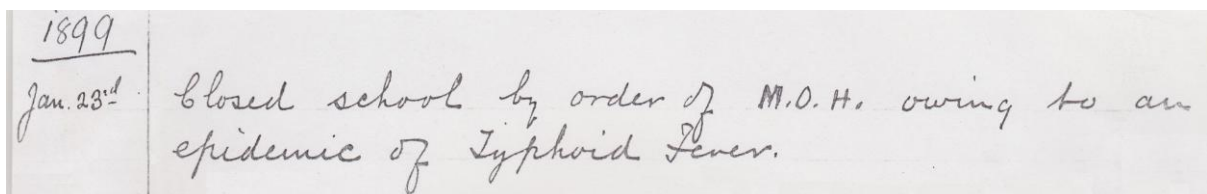 1899
Jan. 23rd Closed school by order of M.O.H. owing to an
epidemic of Typhoid Fever.